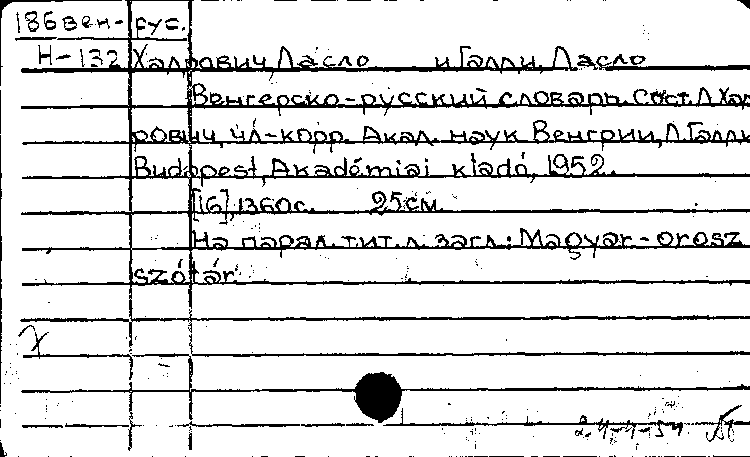 186 вен-рус.
Н-132 Хадрович, Ласло и Галди, Ласло
Венгерско-русский словарь. Сост. Л Хад
рович, чл-корр. Акал. наук Венгрии, Л. Галди
Budapest, Akadémiai kiadó, 1952.
[16], 1360с. 25см.
На парал. тит. л. загл.: Magyar-orosz
szótár.